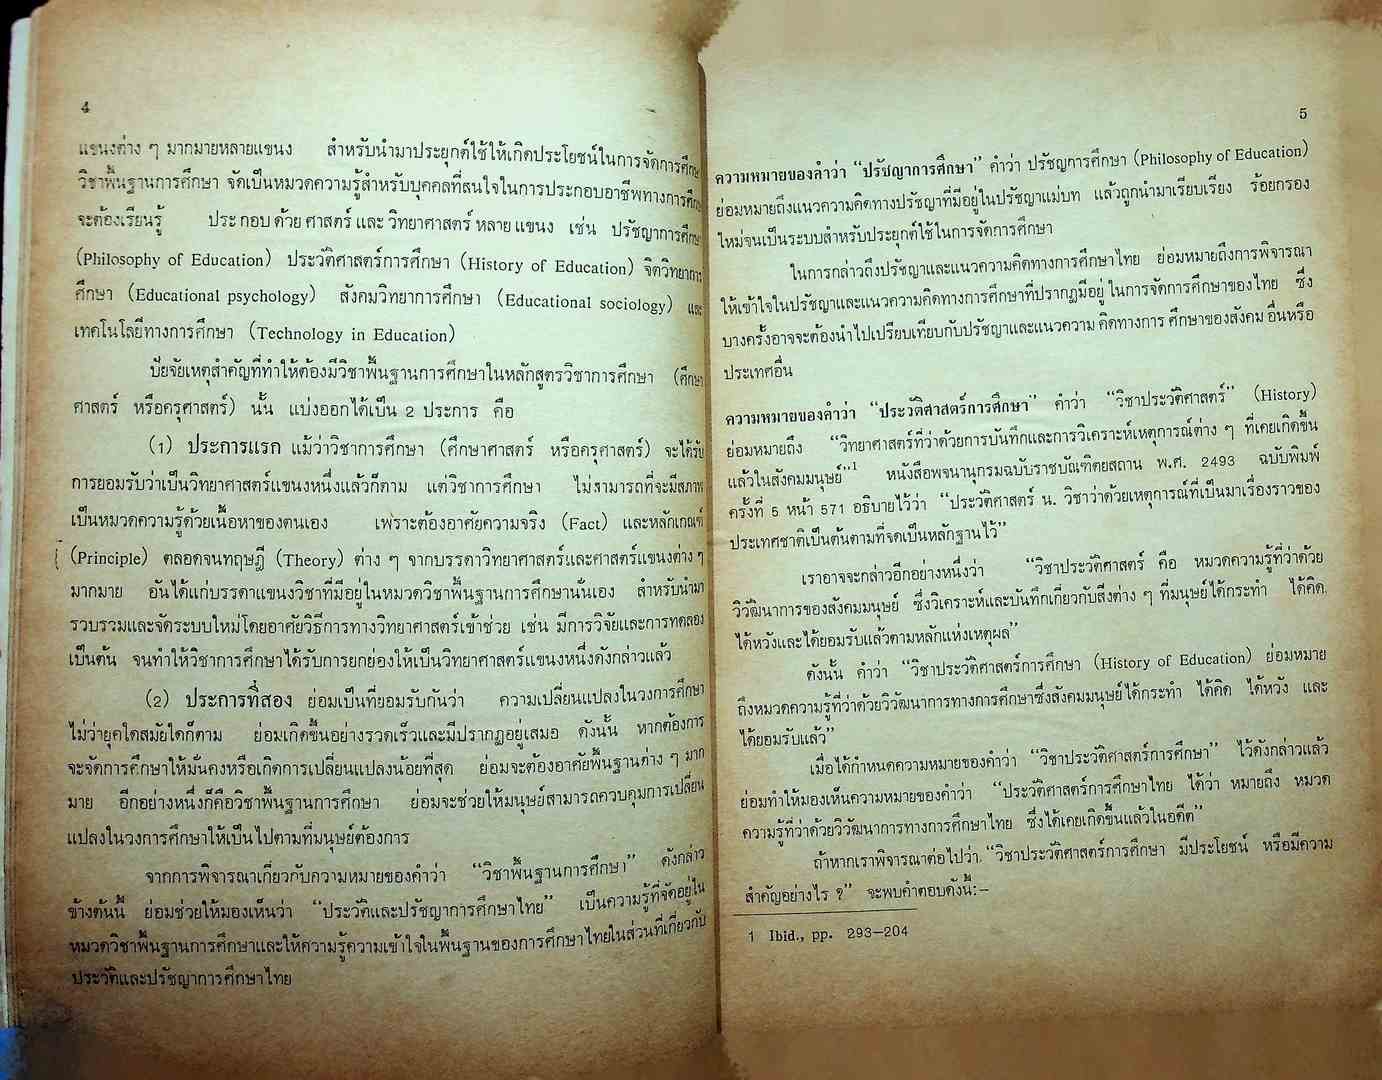 4
แขนงต่าง ๆ มากมายหลายแขนง สำหรับนำมาประยุกต์ใช้ให้เกิดประโยชน์ในการจัดการศึกษา
วิชาพื้นฐานการศึกษา จัดเป็นหมวดความรู้สำหรับบุคคลที่สนใจในการประกอบอาชีพทางการศึกษา
จะต้องเรียนรู้ ประกอบด้วย ศาสตร์ และ วิทยาศาสตร์ หลาย แขนง เช่น ปรัชญาการศึกษา
(Philosophy of Education) ประวัติศาสตร์การศึกษา (History of Education) จิตวิทยาการ
ศึกษา (Educational psychology) สังคมวิทยาการศึกษา (Educational sociology) และ
เทคโนโลยีทางการศึกษา (Technology in Education)
ปัยจัยเหตุสำคัญที่ทำให้ต้องมีวิชาพื้นฐานการศึกษาในหลักสูตรวิชาการศึกษา (ศึกษา
ศาสตร์ หรือครุศาสตร์) นั้น แบ่งออกได้เป็น 2 ประการ คือ
(1) ประการแรก แม้ว่าวิชาการศึกษา (ศึกษาศาสตร์ หรือครุศาสตร์) จะได้รับ
การยอมรับว่าเป็นวิทยาศาสตร์แขนงหนึ่งแล้วก็ตาม แต่วิชาการศึกษา ไม่สามารถที่จะมีสภาพ
เป็นหมวดความรู้ด้วยเนื้อหาของตนเอง เพราะต้องอาศัยความจริง (Fact) และหลักเกณฑ์
(Principle) ตลอดจนทฤษฎี (Theory) ต่าง ๆ จากบรรดาวิทยาศาสตร์และศาสตร์แขนงต่าง ๆ
มากมาย อันได้แก่บรรดาแขนงวิชาที่มีอยู่ในหมวดวิชาพื้นฐานการศึกษานั่นเอง สำหรับนำมา
รวบรวมและจัดระบบใหม่โดยอาศัยวิธีการทางวิทยาศาสตร์เข้าช่วย เช่น มีการวิจัยและการทดลอง
เป็นต้น จนทำให้วิชาการศึกษาได้รับการยกย่องให้เป็นวิทยาศาสตร์แขนงหนึ่งดังกล่าวแล้ว
(2) ประการที่สอง ย่อมเป็นที่ยอมรับกันว่า ความเปลี่ยนแปลงในวงการศึกษา
ไม่ว่ายุคใดสมัยใดก็ตาม ย่อมเกิดขึ้นอย่างรวดเร็วและมีปรากฏอยู่เสมอ ดังนั้น หากต้องการ
จะจัดการศึกษาให้มั่นคงหรือเกิดการเปลี่ยนแปลงน้อยที่สุด ย่อมจะต้องอาศัยพื้นฐานต่าง ๆ มาก
มาย อีกอย่างหนึ่งก็คือวิชาพื้นฐานการศึกษา ย่อมจะช่วยให้มนุษย์สามารถควบคุมการเปลี่ยน
แปลงในวงการศึกษาให้เป็นไปตามที่มนุษย์ต้องการ
จากการพิจารณาเกี่ยวกับความหมายของคำว่า “วิชาพื้นฐานการศึกษา” ดังกล่าว
ข้างต้นนี้ ย่อมช่วยให้มองเห็นว่า “ประวัติและปรัชญาการศึกษาไทย” เป็นความรู้ที่จัดอยู่ใน
หมวดวิชาพื้นฐานการศึกษาและให้ความรู้ความเข้าใจในพื้นฐานของการศึกษาไทยในส่วนที่เกี่ยวกับ
ประวัติและปรัชญาการศึกษาไทย
5
ความหมายของคำว่า “ปรัชญาการศึกษา” คำว่า ปรัชญการศึกษา (Philosophy of Education)
ย่อมหมายถึงแนวความคิดทางปรัชญาที่มีอยู่ในปรัชญาแม่บท แล้วถูกนำมาเรียบเรียง ร้อยกรอง
ใหม่จนเป็นระบบสำหรับประยุกต์ใช้ในการจัดการศึกษา
ในการกล่าวถึงปรัชญาและแนวความคิดทางการศึกษาไทย ย่อมหมายถึงการพิจารณา
ให้เข้าใจในปรัชญาและแนวความคิดทางการศึกษาที่ปรากฏมีอยู่ ในการจัดการศึกษาของไทย ซึ่ง
บางครั้งอาจจะต้องนำไปเปรียบเทียบกับปรัชญาและแนวความ คิดทางการ ศึกษาของสังคม อื่นหรือ
ประเทศอื่น
ความหมายของคำว่า “ประวัติศาสตร์การศึกษา” คำว่า “วิชาประวัติศาสตร์” (History)
ย่อมหมายถึง “วิทยาศาสตร์ที่ว่าด้วยการบันทึกและการวิเคราะห์เหตุการณ์ต่าง ๆ ที่เคยเกิดขึ้น
แล้วในสังคมมนุษย์”1 หนังสือพจนานุกรมฉบับราชบัณฑิตยสถาน พ.ศ. 2493 ฉบับพิมพ์
ครั้งที่ 5 หน้า 571 อธิบายไว้ว่า “ประวัติศาสตร์ น. วิชาว่าด้วยเหตุการณ์ที่เป็นมาเรื่องราวของ
ประเทศชาติเป็นต้นตามที่จดเป็นหลักฐานไว้”
เราอาจจะกล่าวอีกอย่างหนึ่งว่า “วิชาประวัติศาสตร์ คือ หมวดความรู้ที่ว่าด้วย
วิวัฒนาการของสังคมมนุษย์ ซึ่งวิเคราะห์และบันทึกเกี่ยวกับสิ่งต่าง ๆ ที่มนุษย์ได้กระทำ ได้คิด
ได้หวังและได้ยอมรับแล้วตามหลักแห่งเหตุผล”
ดังนั้น คำว่า “วิชาประวัติศาสตร์การศึกษา (History of Education) ย่อมหมาย
ถึงหมวดความรู้ที่ว่าด้วยวิวัฒนาการทางการศึกษาซึ่งสังคมมนุษย์ได้กระทำ ได้คิด ได้หวัง และ
ได้ยอมรับแล้ว”
เมื่อได้กำหนดความหมายของคำว่า “วิชาประวัติศาสตร์การศึกษา” ไว้ดังกล่าวแล้ว
ย่อมทำให้มองเห็นความหมายของคำว่า “ประวัติศาสตร์การศึกษาไทย ได้ว่า หมายถึง หมวด
ความรู้ที่ว่าด้วยวิวัฒนาการทางการศึกษาไทย ซึ่งได้เคยเกิดขึ้นแล้วในอดีต”
ถ้าหากเราพิจารณาต่อไปว่า “วิชาประวัติศาสตร์การศึกษา มีประโยชน์ หรือมีความ
สำคัญอย่างไร ?” จะพบคำตอบดังนี้:–
1 Ibid., pp. 293–204